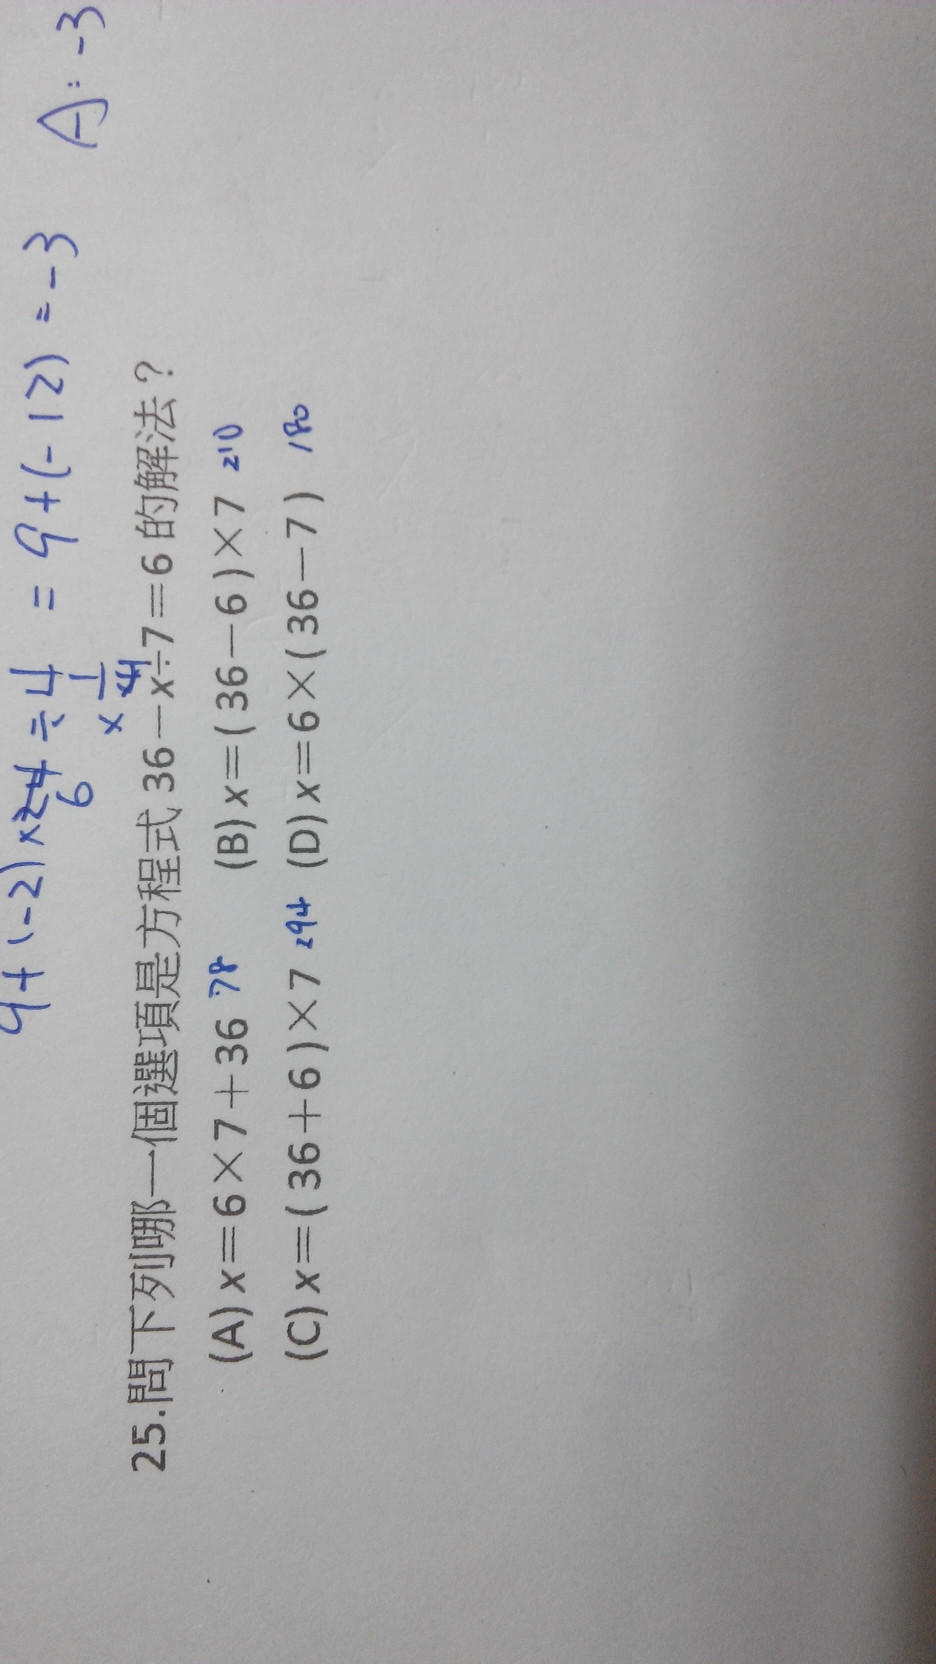 9+(-2)×24÷4 = 9+(-12) = -3 A: -3
6 ×1/4
25.問下列哪一個選項是方程式36－x÷7＝6的解法？
(A)x＝6×7＋36 78 (B)x＝(36－6)×7 210
(C)x＝(36＋6)×7 294 (D)x＝6×(36－7) 180